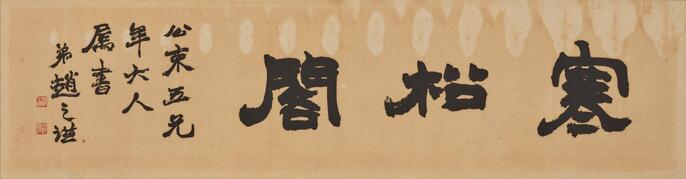 寒松閣
公束五兄
年大人
属書
弟趙之謙